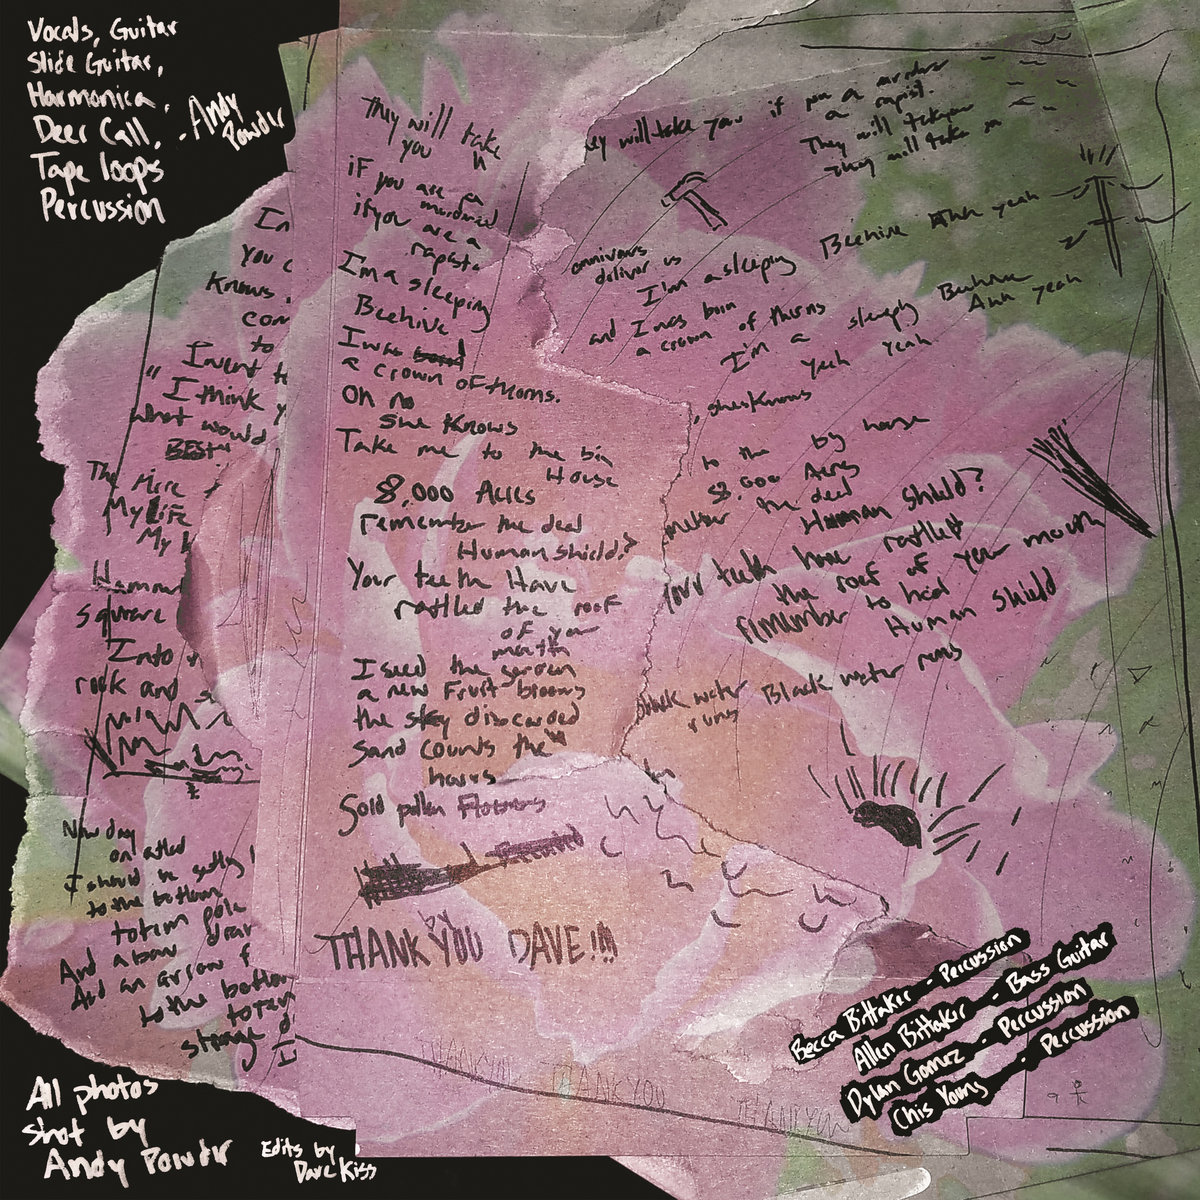 Vocals, Guitar
Slide Guitar,
Harmonica,
Deer Call,
Tape loops
Percussion
- Andy
Powder
In
you
knows
com
to
Invent t
"I think y
what would
BEST"
The Here
My Life
My
Hamm
square
Into
rock and
New day
on
I should be getting
to the bottom
totem pole
And a bow draw
And an arrow f
to the bottom
totem
strange
They will take
you
if you are a
murderer
if you are a
rapist
I'm a sleeping
Beehive
I was
a crown of thorns.
Oh no
She Knows
Take me to the big
House
8,000 Acres
remember the deal
Human shield?
Your teeth Have
rattled the roof
of your
mouth
I seed the garden
a new Fruit blooms
the sky discarded
sand counts the
hours
Gold pollen Flowers
by
THANK YOU DAVE!!!
ey will take you if you a murderer
a rapist.
They will take you
They will take
omnivours
deliver us
I'm a sleeping Beehive Ahh yeah
and I was born
a crown of thorns
I'm a sleeping Beehive
Ahh yeah
yeah yeah
, she knows
to the big house
8,000 Acres
the deal
Human shield?
Your teeth have rattled
the roof of your mouth
remember to heal
Human shield
black water Black water runs
runs
THANK YOU THANK YOU THANK YOU
Becca Bittaker - Percussion
Allen Bittaker - Bass Guitar
Dylan Gomez - Percussion
Chis Young - Percussion
All photos
shot by
Andy Powder
Edits by
Dave Kiss